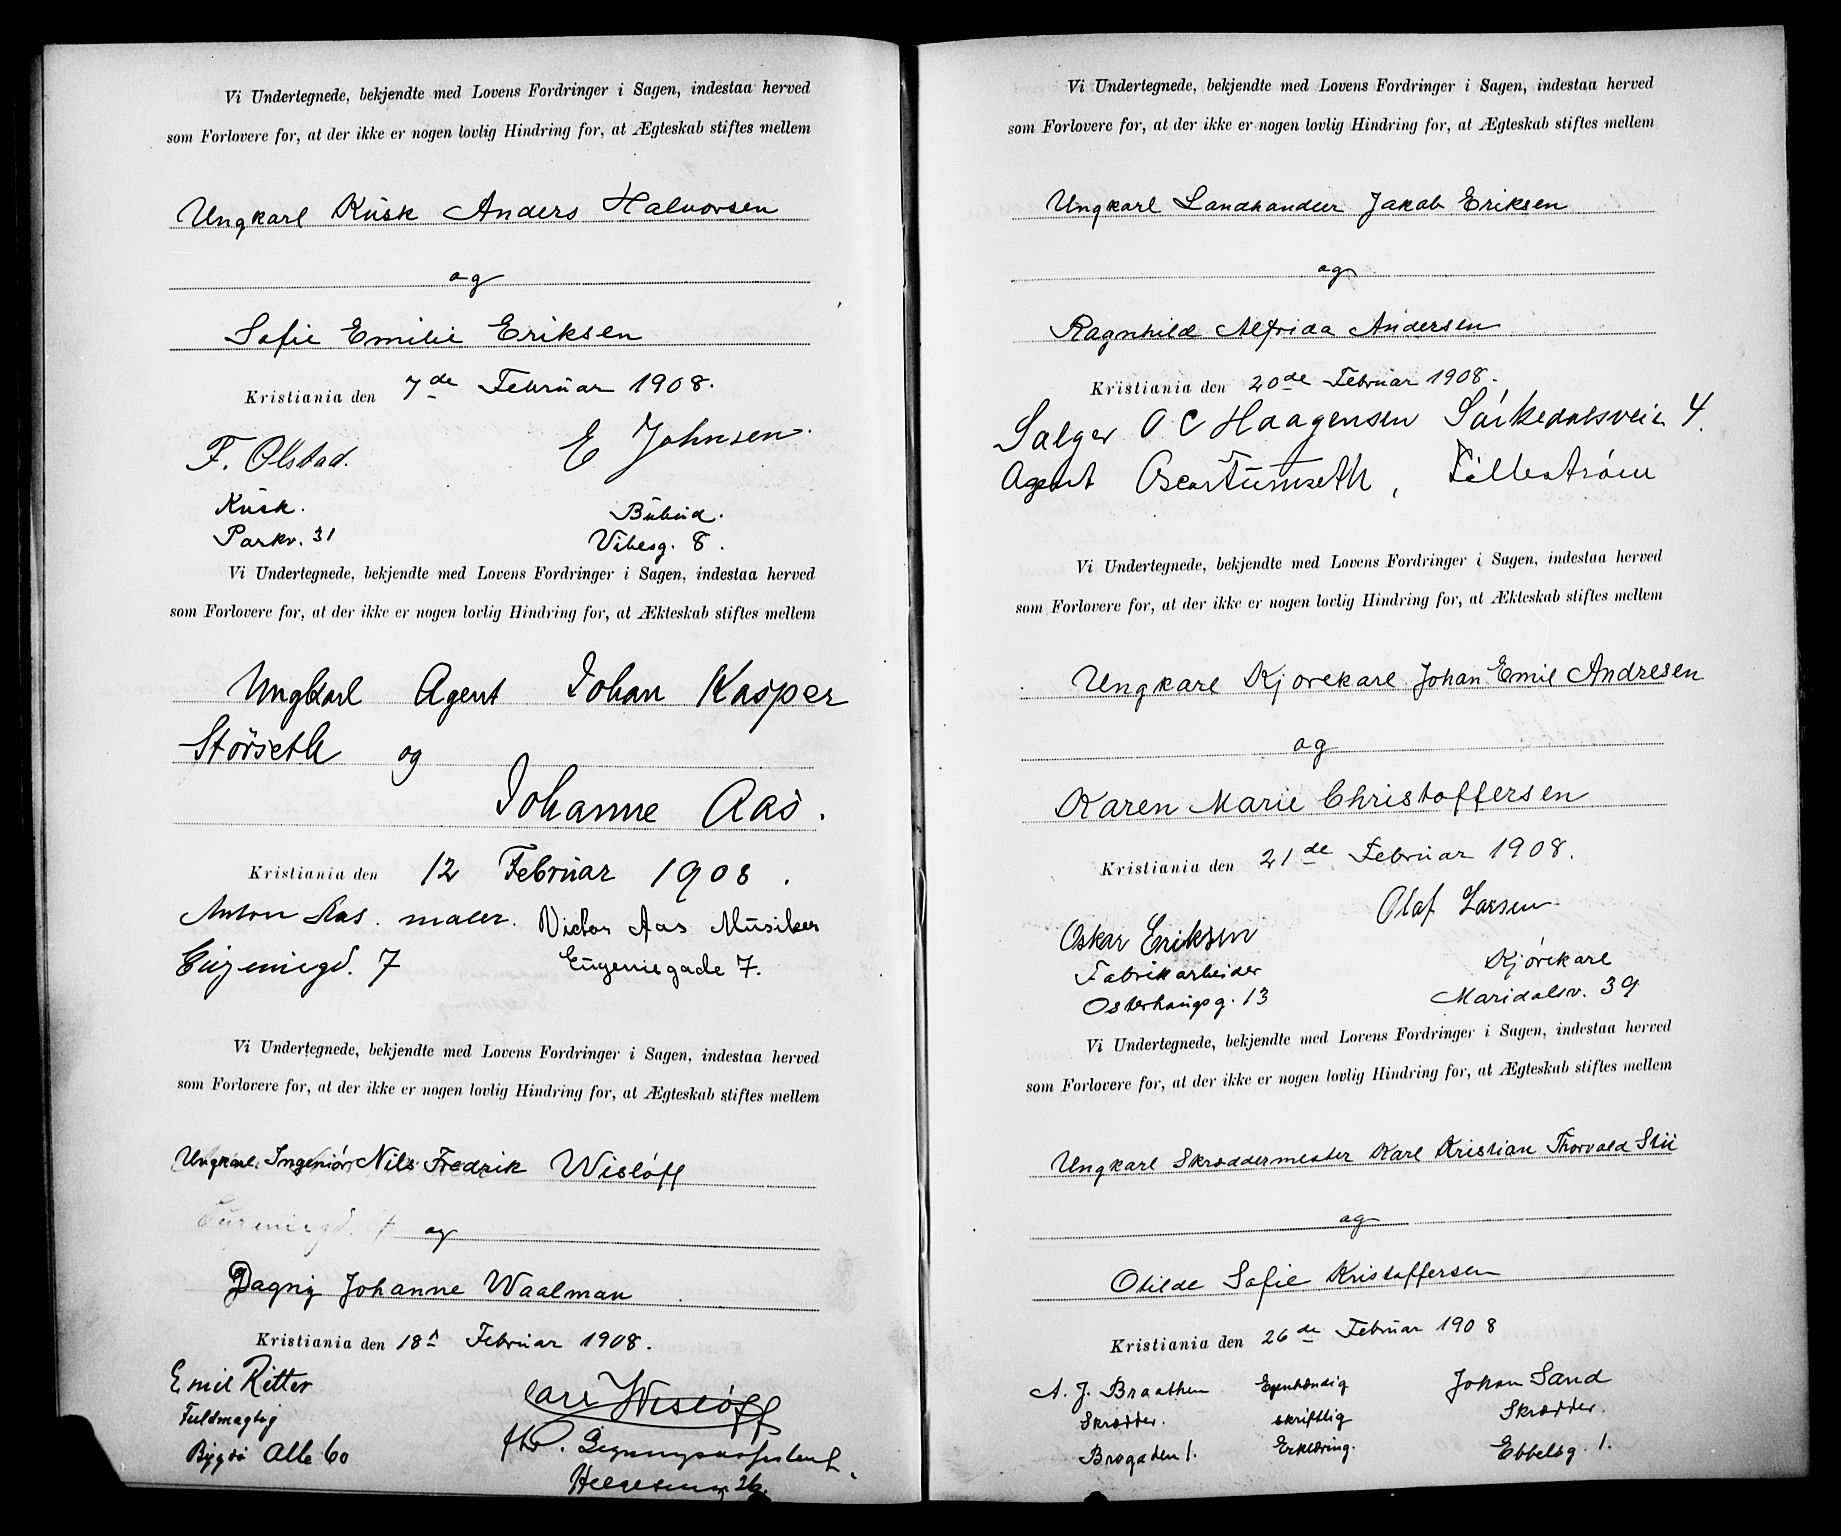 Vi Undertegnede, bekjendte med Lovens Fordringer i Sagen, indestaa herved
som Forlovere for, at der ikke er nogen lovlig Hindring for, at Ægteskab stiftes mellem
Ungkarl Kusk Anders Halvorsen
og
Sofie Emilie Eriksen
Kristiania den 7de Februar 1908.
F. Olstad. E Johnsen.
Kusk. Bübud.
Parkv. 31 Vibesg. 8.
Vi Undertegnede, bekjendte med Lovens Fordringer i Sagen, indestaa herved
som Forlovere for, at der ikke er nogen lovlig Hindring for, at Ækteskab stiftes mellem
Ungkarl Agent Johan Kasper
Störseth og
Johanne Aas.
Kristiania den 12 Februar 1908.
Anton Aas. maler. Victor Aas Musiker
Eugeniegd. 7 Eugeniegade 7.
Vi Undertegnede, bekjendte med Lovens Fordringer i Sagen, indestaa herved
som Forlovere for, at der ikke er nogen lovlig Hindring for, at Ægteskab stiftes mellem
Ungkarl Ingeniör Nils Fredrik Wislöff
Eugeniegd. 7 og
Dagny Johanne Waalman
Kristiania den 18. Februar 1908.
Emil Ritter Carl Wisløff
Fuldmægtig
Bygdö Alle 60
26.
Vi Undertegnede, bekjendte med Lovens Fordringer i Sagen, indestaa herved
som Forlovere for, at der ikke er nogen lovlig Hindring for, at Ægteskab stiftes mellem
Ungkarl Landhandler Jakob Eriksen
og
Ragnhild Alfrida Andersen
Kristiania den 20de Februar 1908.
Sælger O C Haagensen Sørkedalsveien 4.
Agent Oscar Lillestrøm
Vi Undertegnede, bekjendte med Lovens Fordringer i Sagen, indestaa herved
som Forlovere for, at der ikke er nogen lovlig Hindring for, at Ækteskab stiftes mellem
Ungkarl Kjørekarl Johan Emil Andresen
og
Karen Marie Christoffersen
Kristiania den 21de Februar 1908.
Oskar Eriksen Olaf Larsen
Fabrikarbeider Kjørekarl
Osterhaugsg. 13 Maridalsv. 39
Vi Undertegnede, bekjendte med Lovens Fordringer i Sagen, indestaa herved
som Forlovere for, at der ikke er nogen lovlig Hindring for, at Ægteskab stiftes mellem
Ungkarl Skræddermester Karl Kristian Thorvald Stii
og
Otilde Sofie Kristoffersen
Kristiania den 26de Februar 1908
A. J. Braathen Egenhændig Johan Sand
Skrædder. skriftlig Skrædder.
Brogaden 1. Erklæring. Ebbelsg. 1.